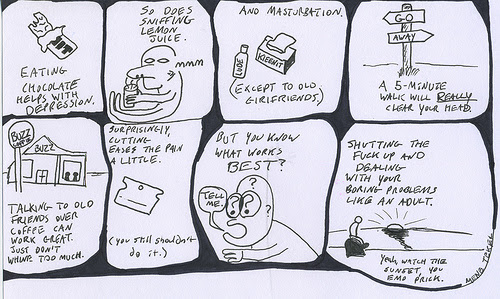 EATING
CHOCOLATE
HELPS WITH
DEPRESSION.
SO DOES
SNIFFING
LEMON
JUICE.
mmm
AND MASTURBATION.
LUBE
KLEENIT
(EXCEPT TO OLD
GIRLFRIENDS.)
GO
AWAY
A 5-MINUTE
WALK WILL REALLY
CLEAR YOUR HEAD.
BUZZ
BUZZ
TALKING TO OLD
FRIENDS OVER
COFFEE CAN
WORK GREAT.
JUST DON'T
WHINE TOO MUCH.
SURPRISINGLY,
CUTTING
EASES THE PAIN
A LITTLE.
(you still shouldn't
do it.)
BUT YOU KNOW
WHAT WORKS
BEST?
TELL
ME.
?
?
SHUTTING THE
FUCK UP AND
DEALING
WITH YOUR
BORING PROBLEMS
LIKE AN ADULT.
Yeah, WATCH THE
SUNSET, YOU
EMO PRICK.